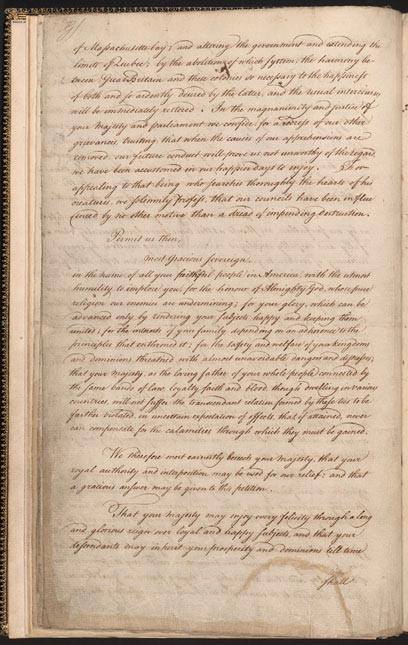 of Massachusetts-bay; and altering the government and extending the
limits of Quebec; by the abolition of which system, the harmony be-
tween Great Britain and these colonies so necessary to the happiness
of both and so ardently desired by the latter, and the usual intercourses
will be immediately restored. In the magnanimity and justice of
your Majesty and parliament we confide, for a redress of our other
grievances, trusting, that when the causes of our apprehensions are
removed, our future conduct will prove us not unworthy of the regard,
we have been accustomed in our happier days to enjoy. For
appealing to that being who searches thoroughly the hearts of his
creatures, we solemnly profess, that our councils have been influ-
enced by no other motive than a dread of impending destruction.
Permit us then,
most gracious sovereign,
in the name of all your faithful people in America, with the utmost
humility to implore you, for the honour of Almighty God, whose pure
religion our enemies are undermining; for your glory, which can be
advanced only by rendering your subjects happy and keeping them
united; for the interests of your family depending on an adherence to the
principles that enthroned it; for the safety and welfare of your kingdoms
and dominions threatned with almost unavoidable dangers and distresses;
that your majesty, as the loving father of your whole people, connected by
the same bands of law, loyalty, faith and blood, though dwelling in various
countries, will not suffer the transcendant relation formed by these ties to be
farther violated, in uncertain expectation of effects, that, if attained, never
can compensate for the calamities through which they must be gained.
We therefore most earnestly beseech your majesty, that your
royal authority and interposition may be used for our relief; and that
a gracious answer may be given to this petition.
That your majesty may enjoy every felicity through a long
and glorious reign over loyal and happy subjects, and that your
descendants may inherit your prosperity and dominions till time
shall